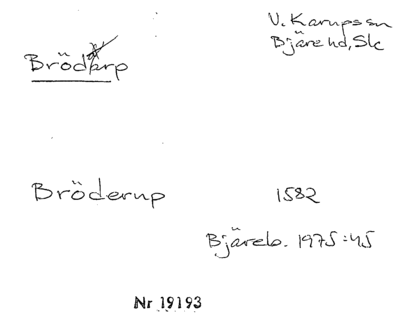 V. Karupssn
Bjäre hd, Sk
Brödarp
Bröderup
1582
Bjäreb. 1975:45
Nr 19193